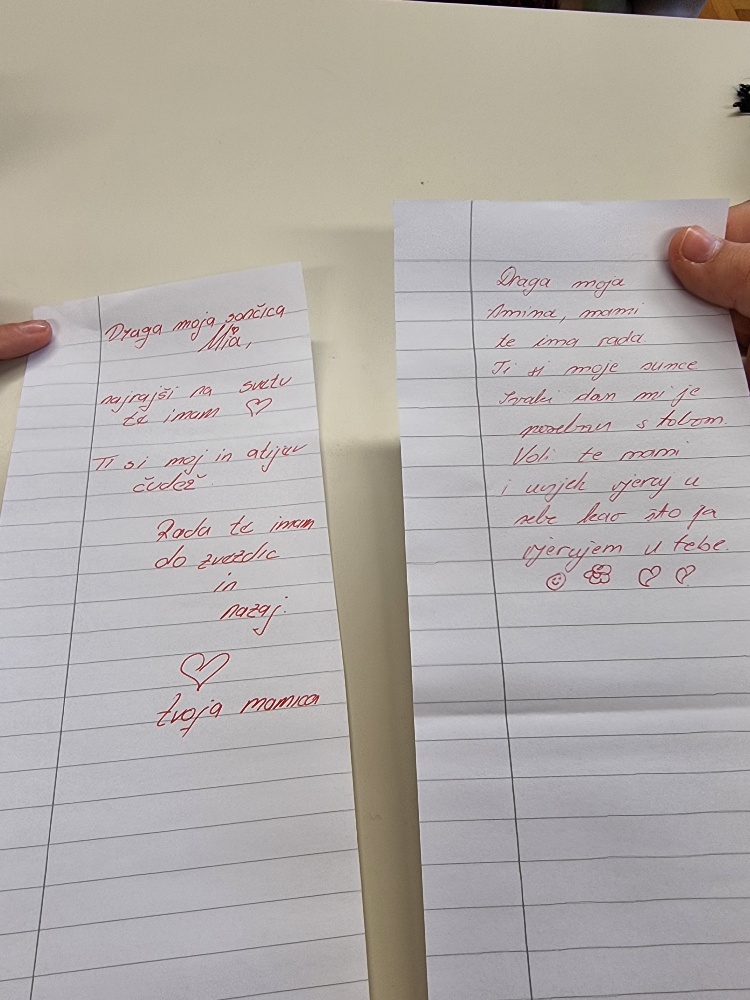 Draga moja sončica
Mia,
najrajši na svetu
te imam ♡
Ti si moj in atijev
čudež
Rada te imam
do zvezdic
in
nazaj.
♡
tvoja mamica
Draga moja
Amina, mami
te ima rada
Ti si moje sunce
Svaki dan mi je
poseban s tobom.
Voli te mami
i uvijek vjeruj u
sebe kao što ja
vjerujem u tebe.